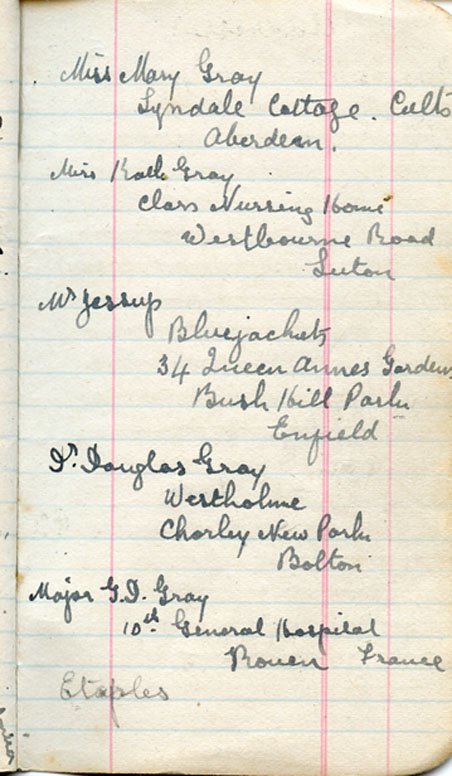 Miss Mary Gray
Lyndale Cottage. Cults
Aberdeen.
Miss Kath Gray
Nursing Home
Westbourne Road
Luton
Mr Jessup
Bluejackets
34 Queen Annes Gardens
Bush Hill Park
Enfield
Dr. Douglas Gray
Westholme
Chorley New Park
Bolton
Major G.D. Gray
10th General Hospital
Rouen France
Etaples